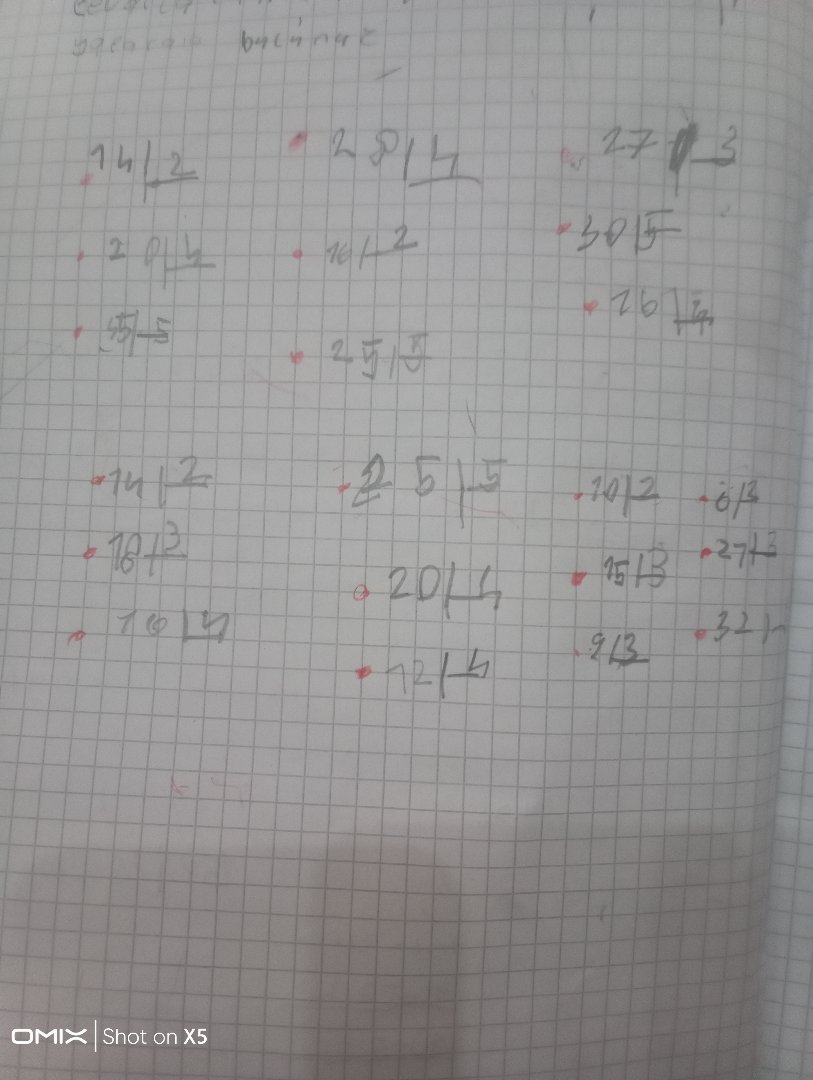 14 | 2    28 | 4    27 | 3
20 | 4    16 | 2    30 | 5
35 | 5    25 | 5    16 | 4
14 | 2    25 | 5    10 | 2    6 | 3
18 | 3    20 | 4    15 | 3    27 | 3
16 | 4    12 | 4    9 | 3    32 |
OMIX | Shot on X5